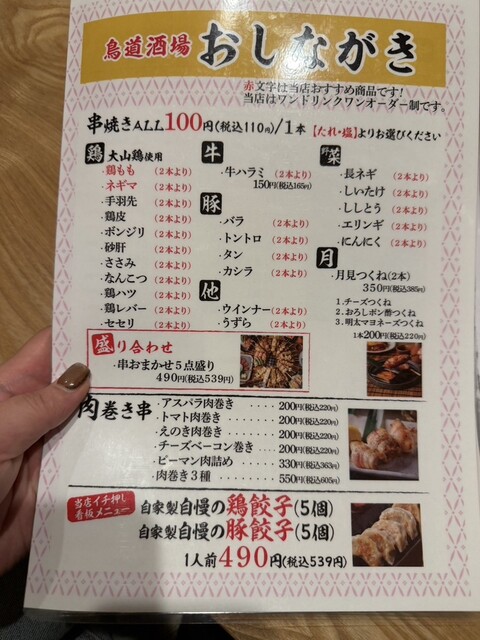 鳥道酒場 おしながき
赤文字は当店おすすめ商品です!
当店はワンドリンクワンオーダー制です。
串焼きALL100円(税込110円)/1本 【たれ・塩】よりお選びください
鶏 大山鶏使用
・鶏もも (2本より)
・ネギマ (2本より)
・手羽先 (2本より)
・鶏皮 (2本より)
・ボンジリ (2本より)
・砂肝 (2本より)
・ささみ (2本より)
・なんこつ (2本より)
・鶏ハツ (2本より)
・鶏レバー (2本より)
・セセリ (2本より)
牛
・牛ハラミ (2本より)
150円(税込165円)
豚
・バラ (2本より)
・トントロ (2本より)
・タン (2本より)
・カシラ (2本より)
他
・ウインナー (2本より)
・うずら (2本より)
野菜
・長ネギ (2本より)
・しいたけ (2本より)
・ししとう (2本より)
・エリンギ (2本より)
・にんにく (2本より)
月
・月見つくね(2本)
350円(税込385円)
1.チーズつくね
2.おろしポン酢つくね
3.明太マヨネーズつくね
1本200円(税込220円)
盛り合わせ
・串おまかせ5点盛り
490円(税込539円)
肉巻き串
・アスパラ肉巻き ････ 200円(税込220円)
・トマト肉巻き ････ 200円(税込220円)
・えのき肉巻き ････ 200円(税込220円)
・チーズベーコン巻き ･･･ 200円(税込220円)
・ピーマン肉詰め ････ 330円(税込363円)
・肉巻き3種 ････ 550円(税込605円)
当店イチ押し
看板メニュー
自家製自慢の鶏餃子(5個)
自家製自慢の豚餃子(5個)
1人前490円(税込539円)